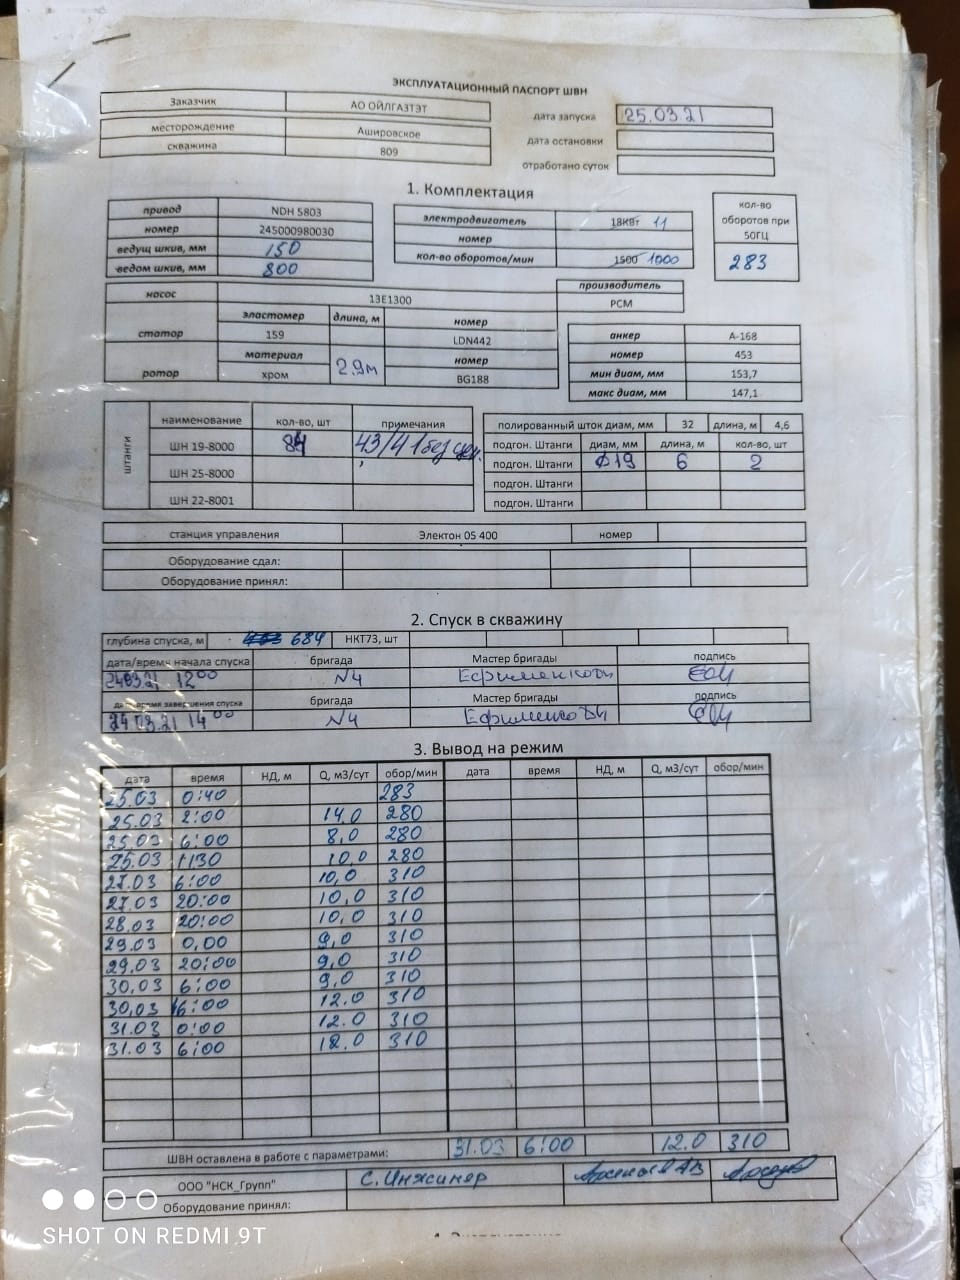 ЭКСПЛУАТАЦИОННЫЙ ПАСПОРТ ШВН
Заказчик АО ОЙЛГАЗТЭТ
месторождение Ашировское
скважина 809
дата запуска 25.03 21
дата остановки
отработано суток
1. Комплектация
привод NDH 5803
номер 245000980030
ведущ шкив, мм 150
ведом шкив, мм 800
электродвигатель 18КВт 11
номер
кол-во оборотов/мин 1500 1000
кол-во
оборотов при
50ГЦ
283
насос 13Е1300
производитель
РСМ
статор эластомер длина, м номер
159 LDN442
ротор материал 2,9м номер
хром BG188
анкер А-168
номер 453
мин диам, мм 153,7
макс диам, мм 147,1
штанги
наименование кол-во, шт примечания
ШН 19-8000 84 43/41 без
ШН 25-8000
ШН 22-8001
полированный шток диам, мм 32 длина, м 4,6
подгон. Штанги диам, мм длина, м кол-во, шт
подгон. Штанги ф19 6 2
подгон. Штанги
подгон. Штанги
станция управления Электон 05 400 номер
Оборудование сдал:
Оборудование принял:
2. Спуск в скважину
глубина спуска, м 684 НКТ73, шт
дата/время начала спуска бригада Мастер бригады подпись
24.03.21 12 00 N4
дата/время завершения спуска бригада Мастер бригады подпись
24.03.21 14 00 N4
3. Вывод на режим
дата время НД, м Q, м3/сут обор/мин дата время НД, м Q, м3/сут обор/мин
25.03 0:40 283
25.03 2:00 14,0 280
25.03 6:00 8,0 280
25.03 1130 10,0 280
27.03 6:00 10,0 310
27.03 20:00 10,0 310
28.03 20:00 10,0 310
29.03 0,00 9,0 310
29.03 20:00 9,0 310
30,03 6:00 9,0 310
30,03 16:00 12.0 310
31.03 0:00 12.0 310
31.03 6:00 12.0 310
ШВН оставлена в работе с параметрами: 31.03 6:00 12.0 310
ООО "НСК_Групп" С. Инженер
Оборудование принял:
SHOT ON REDMI 9T